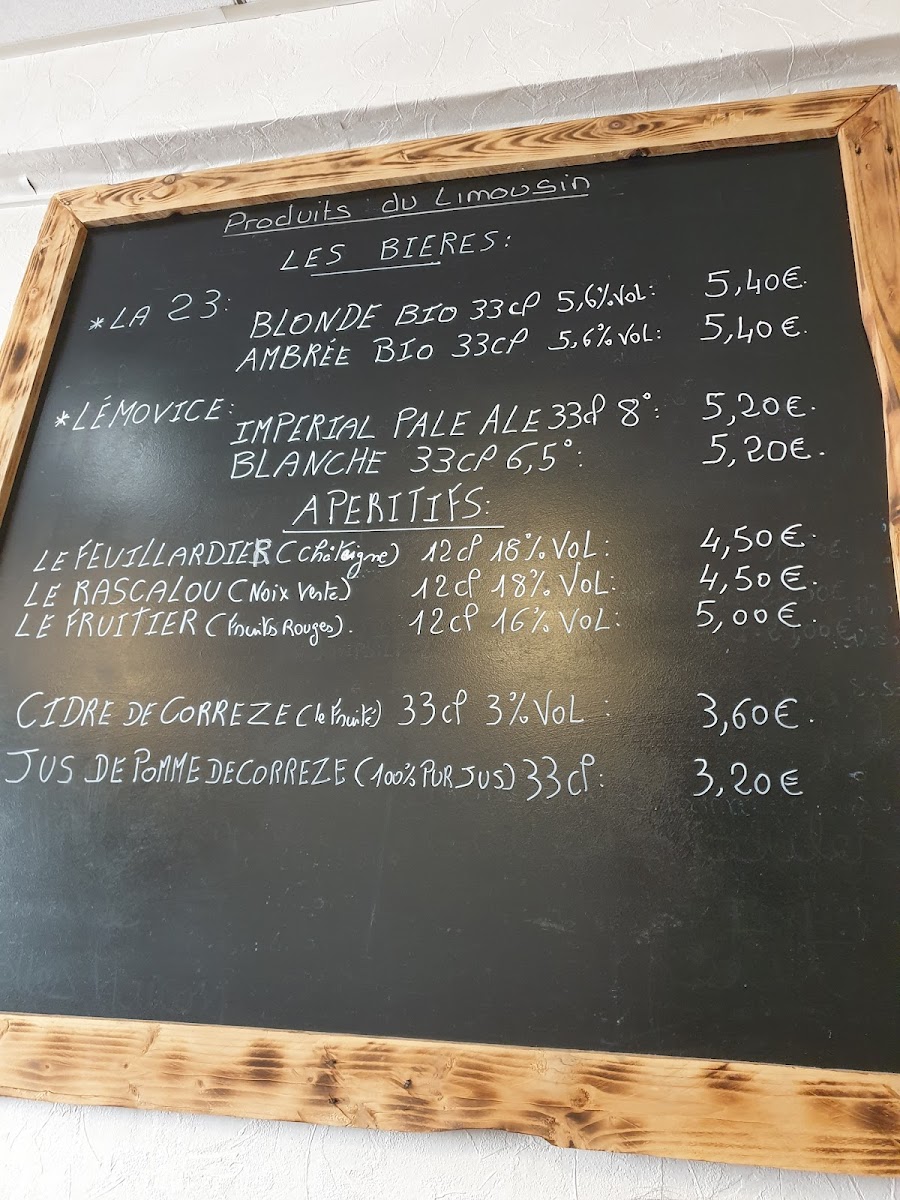 Produits du Limousin
LES BIERES:
*LA 23: BLONDE BIO 33cl 5,6% VOL: 5,40€.
AMBRÉE BIO 33cl 5,6% VOL: 5,40€.
*LÉMOVICE: IMPERIAL PALE ALE 33cl 8°: 5,20€.
BLANCHE 33cl 6,5°: 5,20€.
APERITIFS:
LE FEUILLARDIER (Châtaigne) 12cl 18% VOL: 4,50€.
LE RASCALOU (Noix Verte) 12cl 18% VOL: 4,50€.
LE FRUITIER (Fruits Rouges). 12cl 16% VOL: 5,00€.
CIDRE DE CORREZE (le fruité) 33cl 3% VOL : 3,60€.
JUS DE POMME DE CORREZE (100% PUR JUS) 33cl: 3,20€